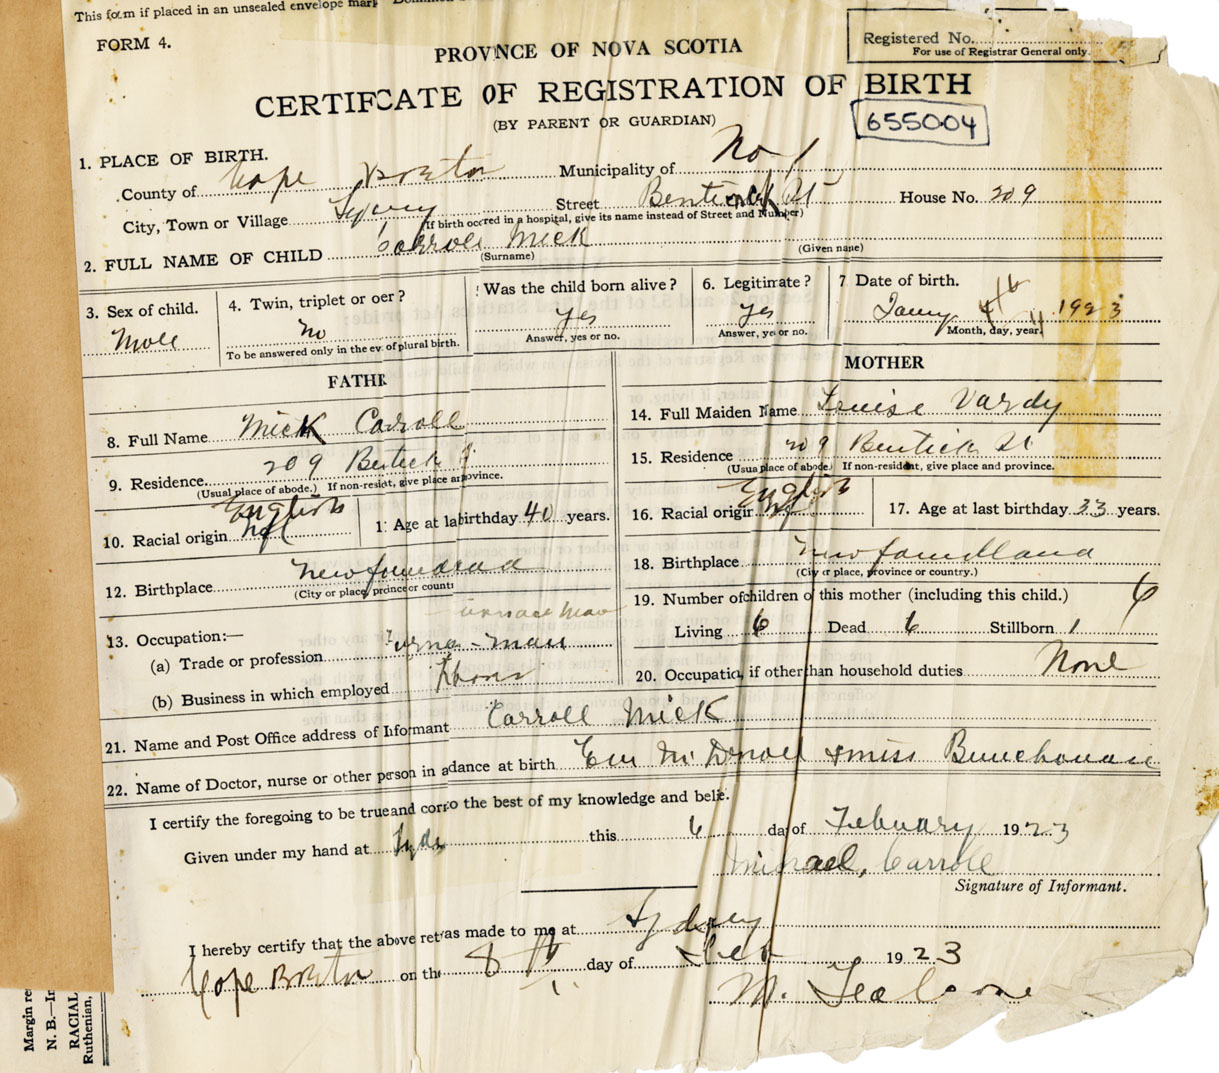 This form if placed in an unsealed envelope mar
FORM 4.
Registered No.
For use of Registrar General only.
PROVINCE OF NOVA SCOTIA
CERTIFCATE OF REGISTRATION OF BIRTH
(BY PARENT OR GUARDIAN)
655004
1. PLACE OF BIRTH.
County of Cape Breton Municipality of No 1
City, Town or Village Sydney Street Bentinck St House No. 209
If birth occred in a hospital, give its name instead of Street and Number)
2. FULL NAME OF CHILD Carroll Mick
(Surname) (Given name)
3. Sex of child. Male
4. Twin, triplet or oer? No
To be answered only in the ev of plural birth.
Was the child born alive? Yes
Answer, yes or no.
6. Legitimrate? Yes
Answer, ye or no.
7 Date of birth.
Jany 4th 1923
Month, day, year.
FATHR
MOTHER
8. Full Name Mick Carroll
14. Full Maiden Name Louise Vardy
9. Residence 209 Bentick
(Usual place of abode.) If non-resident, give place or province.
15. Residence 209 Bentick St
(Usua place of abode.) If non-resident, give place and province.
10. Racial origin English Nfl
1 Age at la birthday 40 years.
16. Racial origin English Nfl
17. Age at last birthday 33 years.
12. Birthplace Newfoundland
(City or place, province or count
18. Birthplace Newfoundland
(City or place, province or country.)
19. Number of children of this mother (including this child.) 6
Living 6 Dead 6 Stillborn 1
13. Occupation:—
furnace man
(a) Trade or profession Furna-man
(b) Business in which employed
20. Occupatio, if other than household duties None
21. Name and Post Office address of Iformant Carroll Mick
22. Name of Doctor, nurse or other person in adance at birth Ew McDonald & miss
I certify the foregoing to be true and corro the best of my knowledge and belie.
Given under my hand at Sydn this 6 day of Febuary 1923
Michael, Carroll
Signature of Informant.
I hereby certify that the above ret as made to me at Sydney
Cape Breton on th 8th day of Feb 1923
M.
Margin re
N. B.—In
RACIAL
Ruthenian,